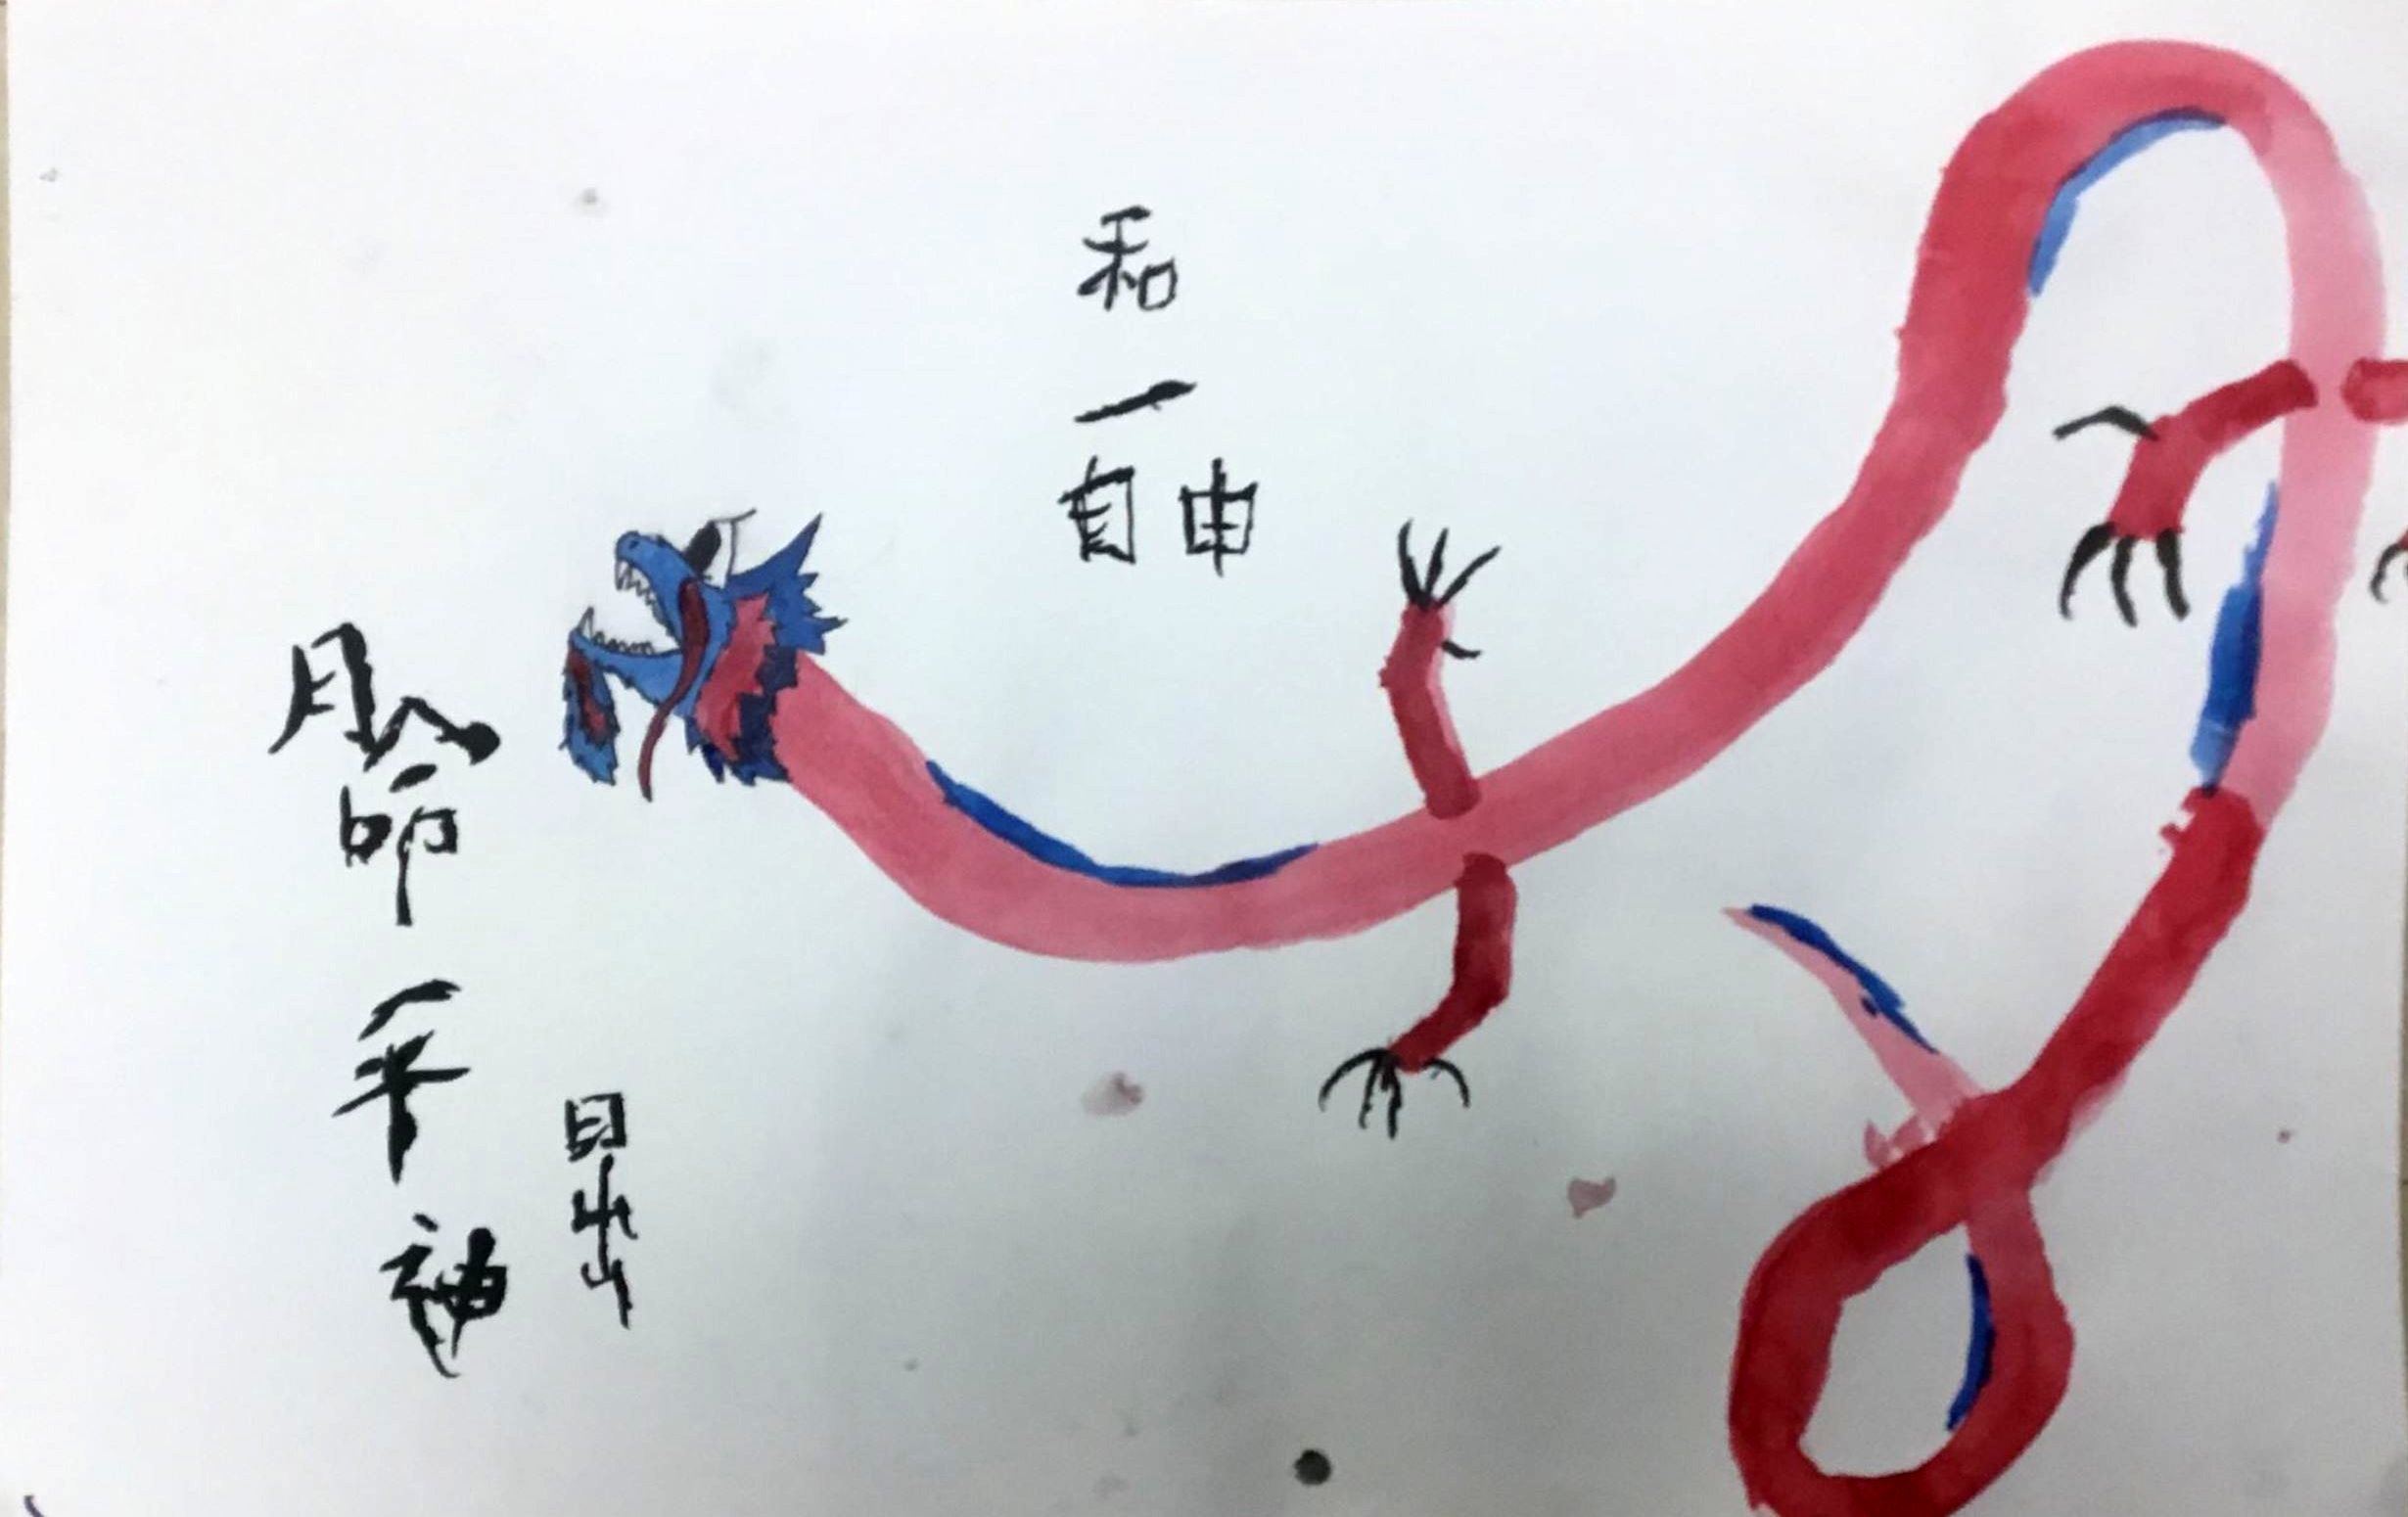 和
一
自由
月
命
平
神
日出